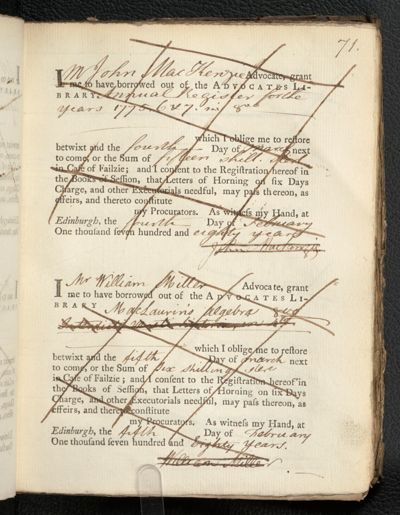 71.
I Mr John MacKenzie Advocate, grant
me to have borrowed out of the ADVOCATES LI-
BRARY Annual Register for the
years 1775 6 & 7 in 8vo
which I oblige me to reſtore
betwixt and the fourth Day of March next
to come, or the Sum of fifteen ſhill. ster
in Caſe of Failzie; and I conſent to the Regiſtration hereof in
the Books of Seſſion, that Letters of Horning on ſix Days
Charge, and other Executorials needful, may paſs thereon, as
effeirs, and thereto conſtitute
my Procurators. As witneſs my Hand, at
Edinburgh, the fourth Day of February
One thouſand ſeven hundred and eighty years
John Mackenzie
I Mr William Miller Advocate, grant
me to have borrowed out of the ADVOCATES LI-
BRARY MacLaurin's Algebra 8vo
which I oblige me to reſtore
betwixt and the fifth Day of March next
to come, or the Sum of six shillings ster
in Caſe of Failzie; and I conſent to the Regiſtration hereof in
the Books of Seſſion, that Letters of Horning on ſix Days
Charge, and other Executorials needful, may paſs thereon, as
effeirs, and thereto conſtitute
my Procurators. As witneſs my Hand, at
Edinburgh, the fifth Day of February
One thouſand ſeven hundred and Eighty years.
William Miller